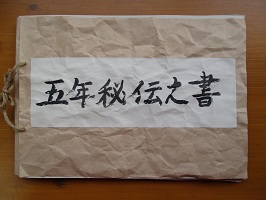 五年秘伝之書